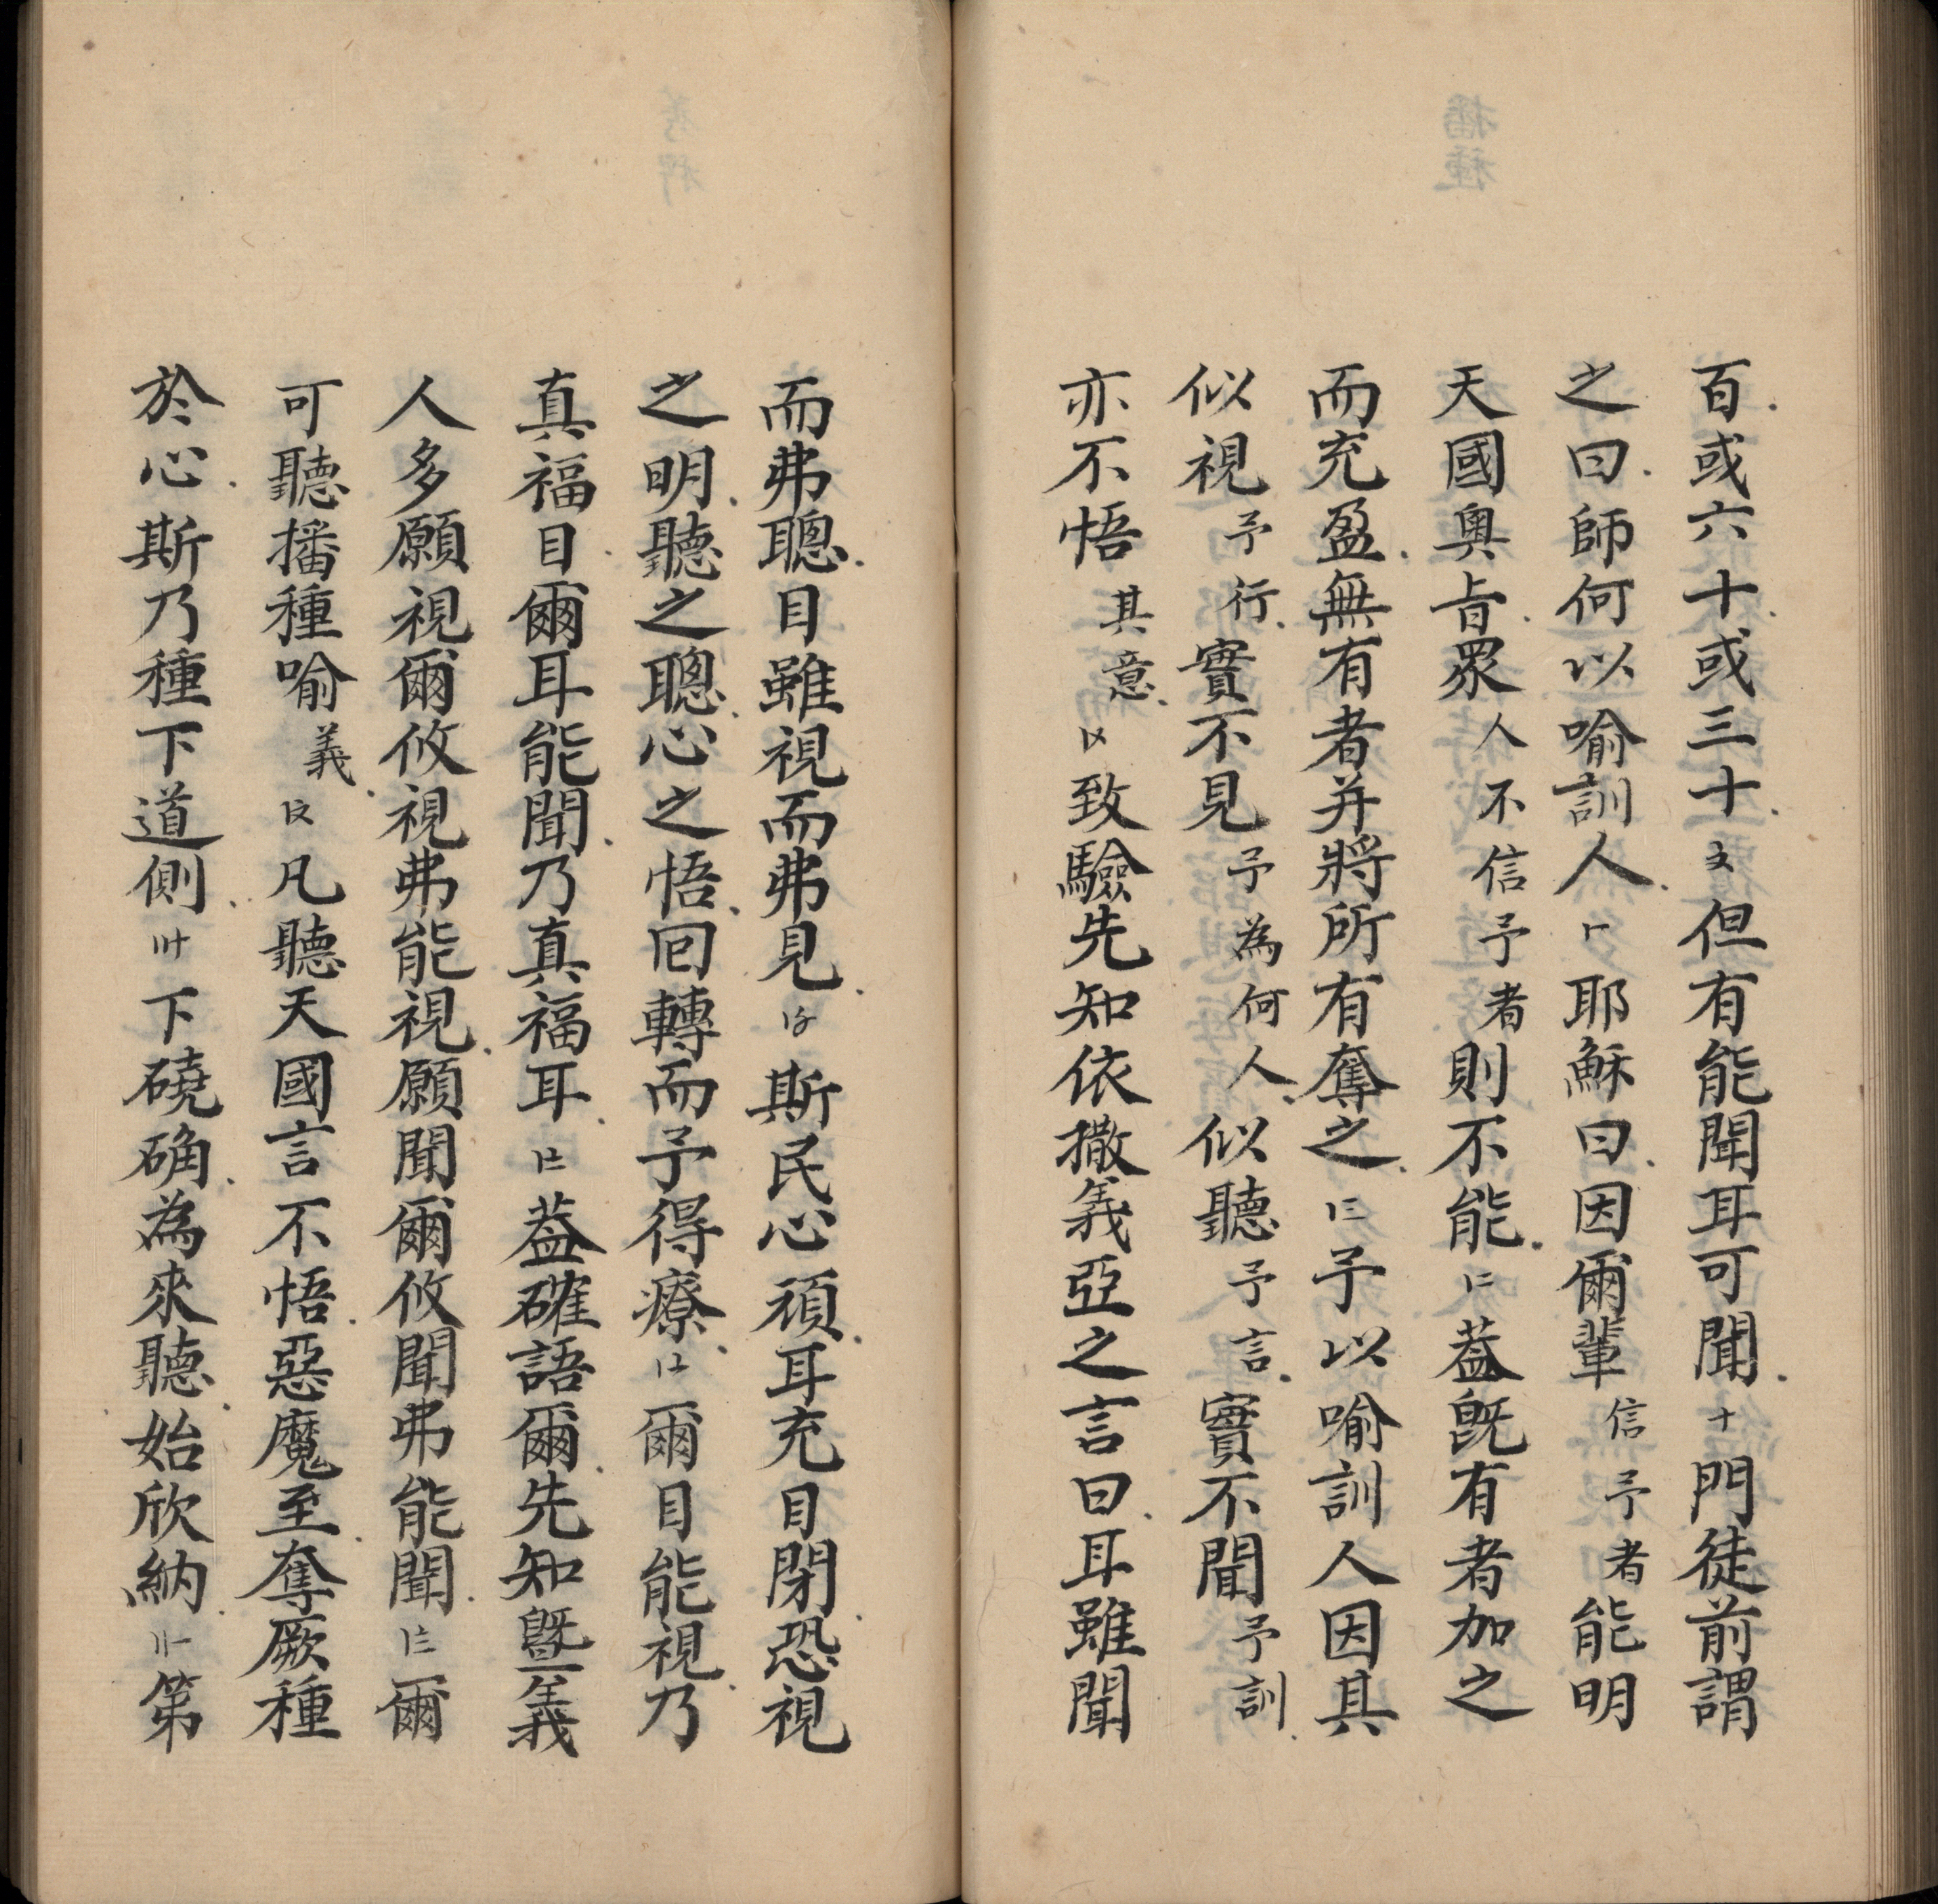 百或六十或三十文但有能聞耳可聞十門徒前謂
之曰師何以喻訓人耶穌曰因爾輩信予者能明
天國奧㫖眾人不信予者則不能葢旣有者加之
而充盈無有者并將所有奪之予以喻訓人因其
似視予行實不見予為何人似聽予言實不聞予訓
亦不悟其意致驗先知依撒義亞之言曰耳雖聞
而弗聰目雖視而弗見斯民心頑耳充目閉恐視
之明聽之聰心之悟囘轉而予得療爾目能視乃
真福目爾耳能聞乃真福耳葢確語爾先知曁義
人多願視爾攸視弗能視願聞爾攸聞弗能聞爾
可聽播種喻義凡聽天國言不悟惡魔至奪厥種
於心斯乃種下道側下磽确為來聽始欣納第